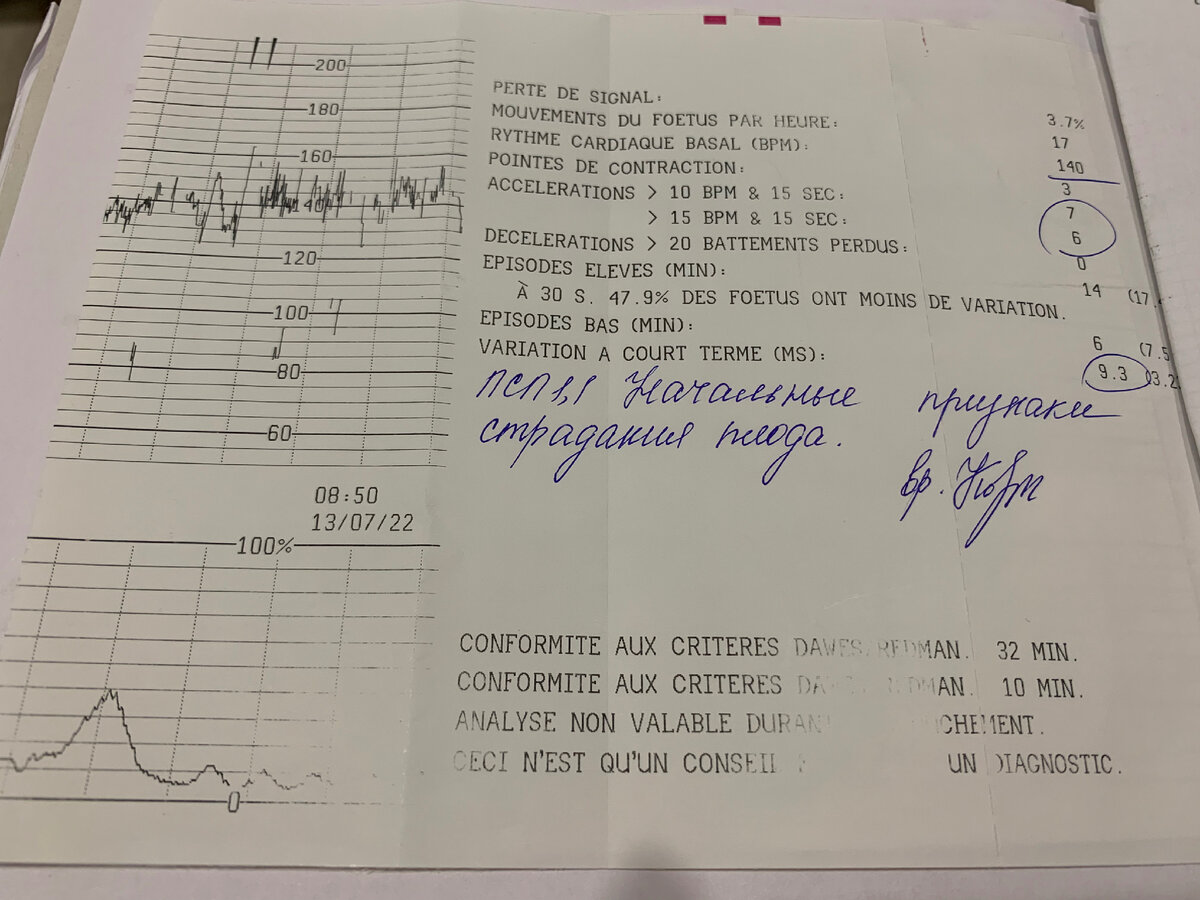 200
180
160
140
120
100
80
60
08:50
13/07/22
100%
0
PERTE DE SIGNAL: 3.7%
MOUVEMENTS DU FOETUS PAR HEURE: 17
RYTHME CARDIAQUE BASAL (BPM): 140
POINTES DE CONTRACTION: 3
ACCELERATIONS > 10 BPM & 15 SEC: 7
> 15 BPM & 15 SEC: 6
DECELERATIONS > 20 BATTEMENTS PERDUS: 0
EPISODES ELEVES (MIN): 14 (17.
À 30 S. 47.9% DES FOETUS ONT MOINS DE VARIATION.
EPISODES BAS (MIN): 6 (7.5
VARIATION A COURT TERME (MS): 9.3 (3.2
ПСП 1,1 Начальные признаки
страдания плода.
вр.
CONFORMITE AUX CRITERES DAWES/REDMAN. 32 MIN.
CONFORMITE AUX CRITERES 10 MIN.
ANALYSE NON VALABLE
CECI N'EST QU'UN CONSEIL UN DIAGNOSTIC.